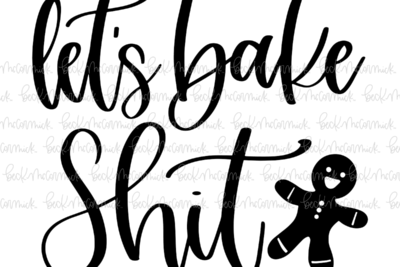 let's bake
Shit